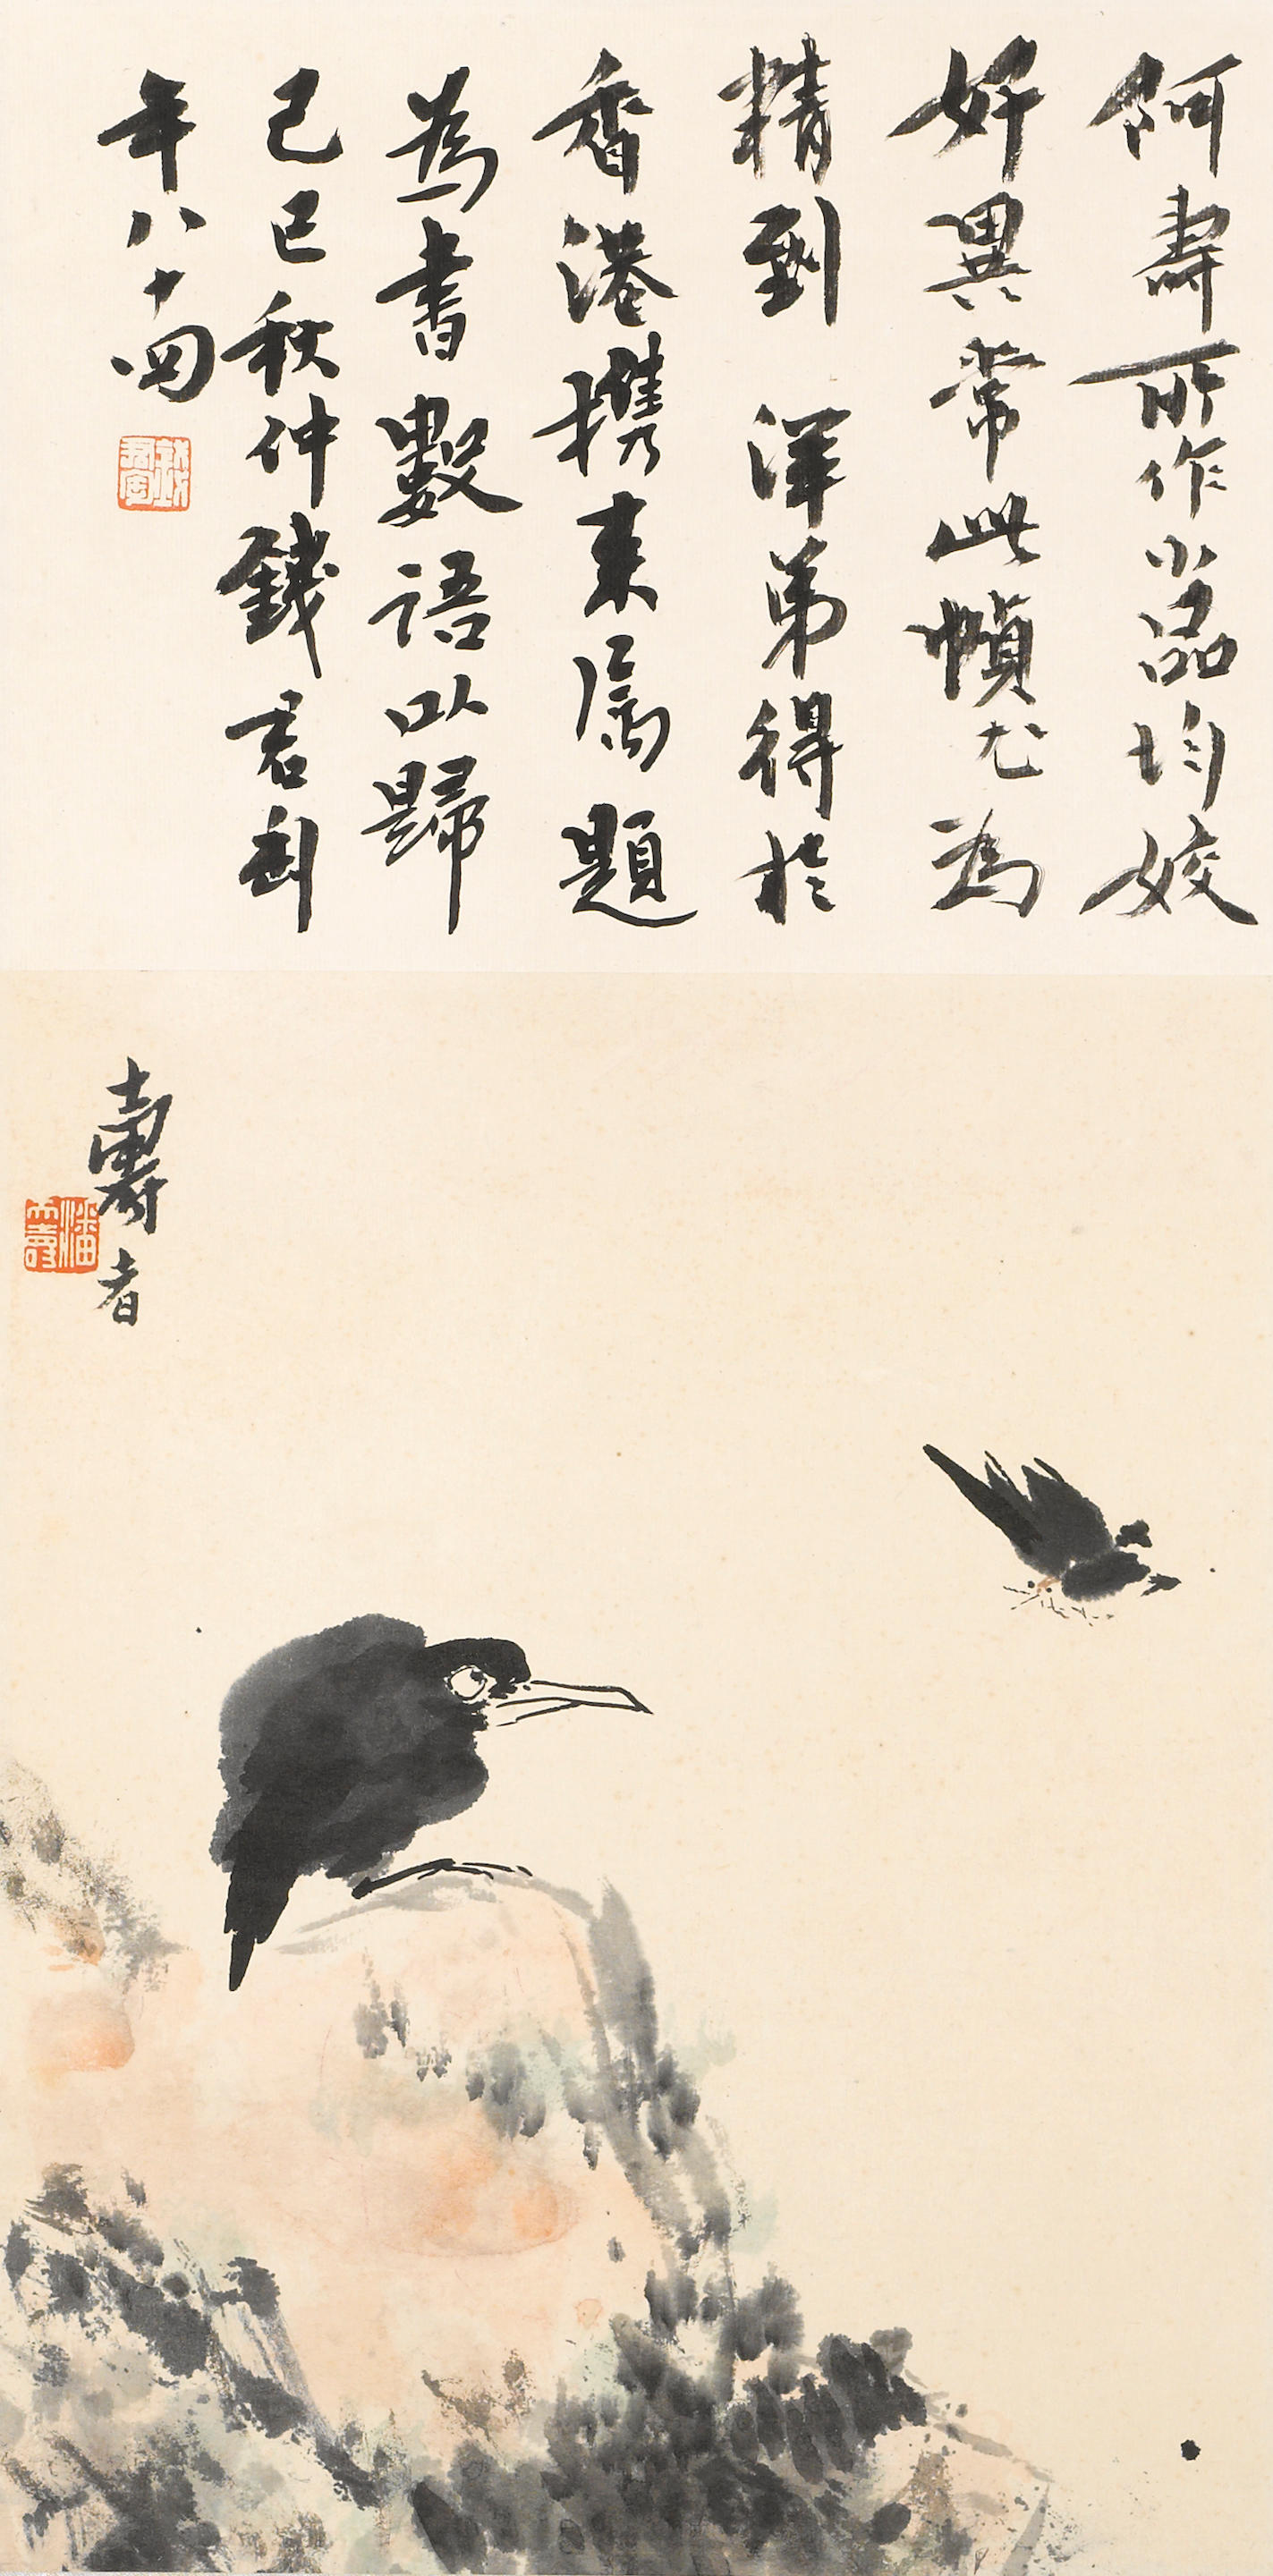 阿壽所作小品均姣
妍異常此幀尤為
精到 弟得於
香港携来属題
為書數語以歸
己巳秋仲錢君匋
年八十四
壽者
潘天壽